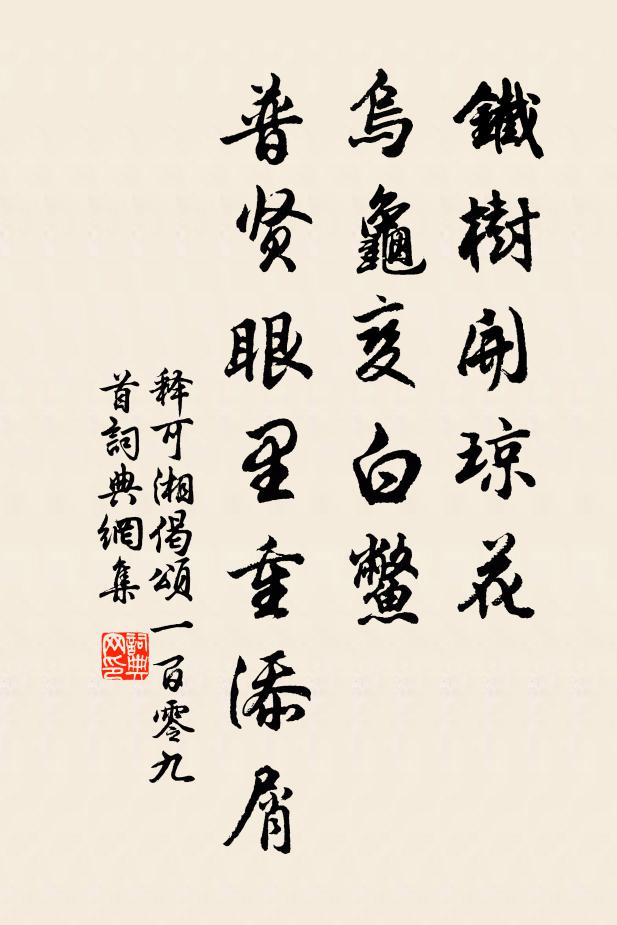 鐵樹開琼花
烏龜变白鱉
普贤眼里重添屑
释可湘偈頌一百零九
首詞典網集
詞典网印